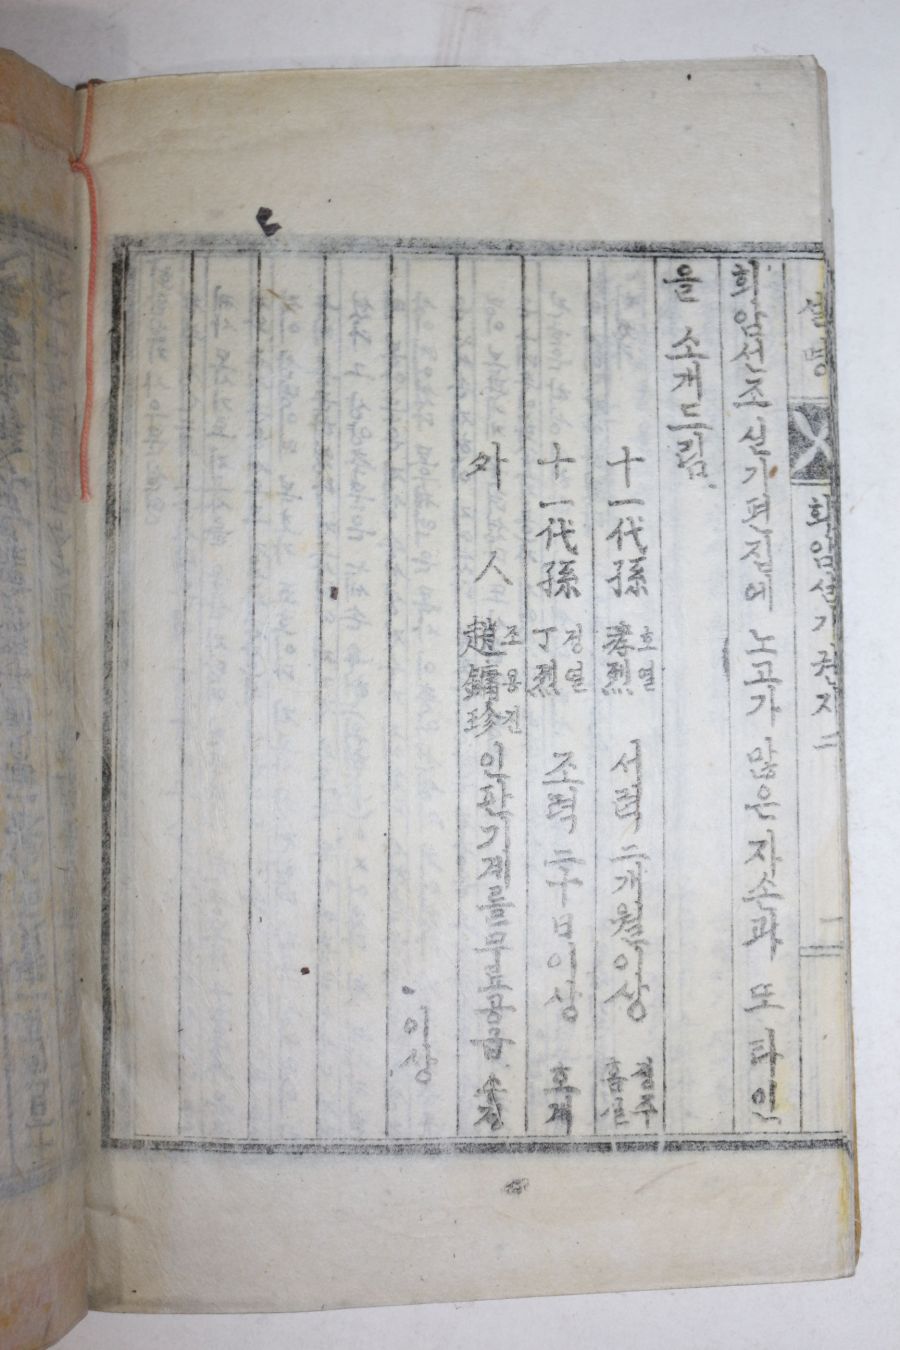 설명 화암실기 권지 二 一
화암선조 실기 편집의 노고가 많은 자손과 또 타인
을 소개드림.
十一代孫 孝烈 효열 서력 二개월이상
十一代孫 丁烈 정열 조력 二十日이상
外人 趙鏞珍 조용진 인판기계를 무료공급
이상